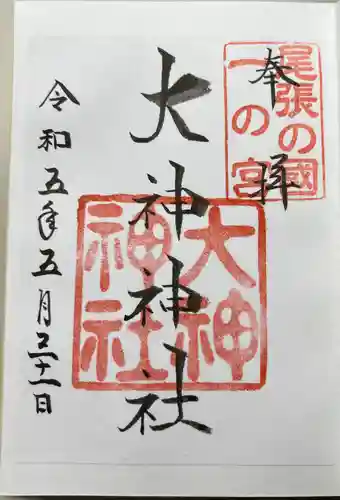 奉拝
尾張の國
一の宮
大神神社
大神
神社
令和五年五月三十一日